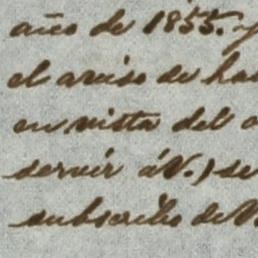 año de 1855. y
el aviso de ha
en vista del
servir á V.) se
subscribo de V.